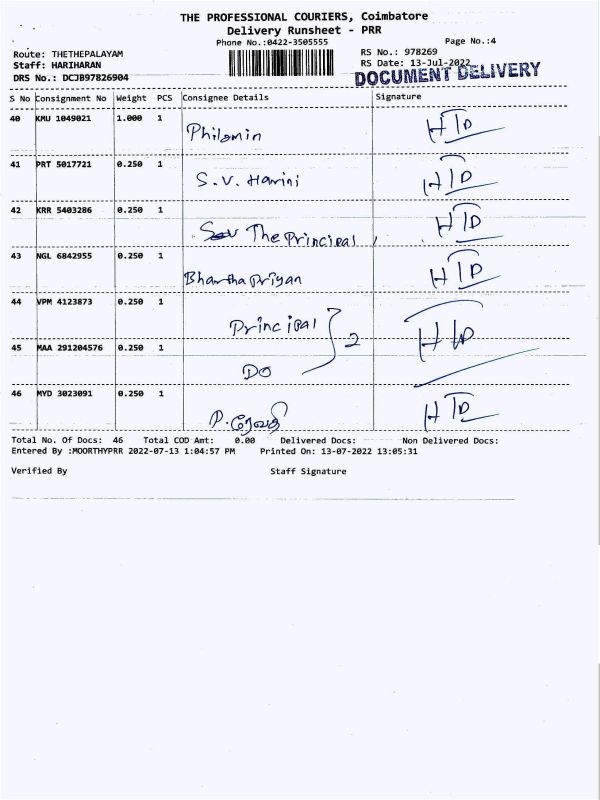 THE PROFESSIONAL COURIERS, Coimbatore
Delivery Runsheet - PRR
Phone No.:0422-3505555 Page No.:4
Route: THETHEPALAYAM RS No.: 978269
Staff: HARIHARAN RS Date: 13-Jul-2022
DRS No.: DCJB97826904 DOCUMENT DELIVERY
S No Consignment No Weight PCS Consignee Details Signature
40 KMU 1049021 1.000 1 Philomin HTD
41 PRT 5017721 0.250 1 S.V. Harini HTD
42 KRR 5403286 0.250 1 The Principal HTD
43 NGL 6842955 0.250 1 Bharthapriyan HTD
44 VPM 4123873 0.250 1 Principal
2 HTD
45 MAA 291204576 0.250 1 DO
46 MYD 3023091 0.250 1 P. ரேவதி HTD
Total No. Of Docs: 46 Total COD Amt: 0.00 Delivered Docs: Non Delivered Docs:
Entered By :MOORTHYPRR 2022-07-13 1:04:57 PM Printed On: 13-07-2022 13:05:31
Verified By Staff Signature